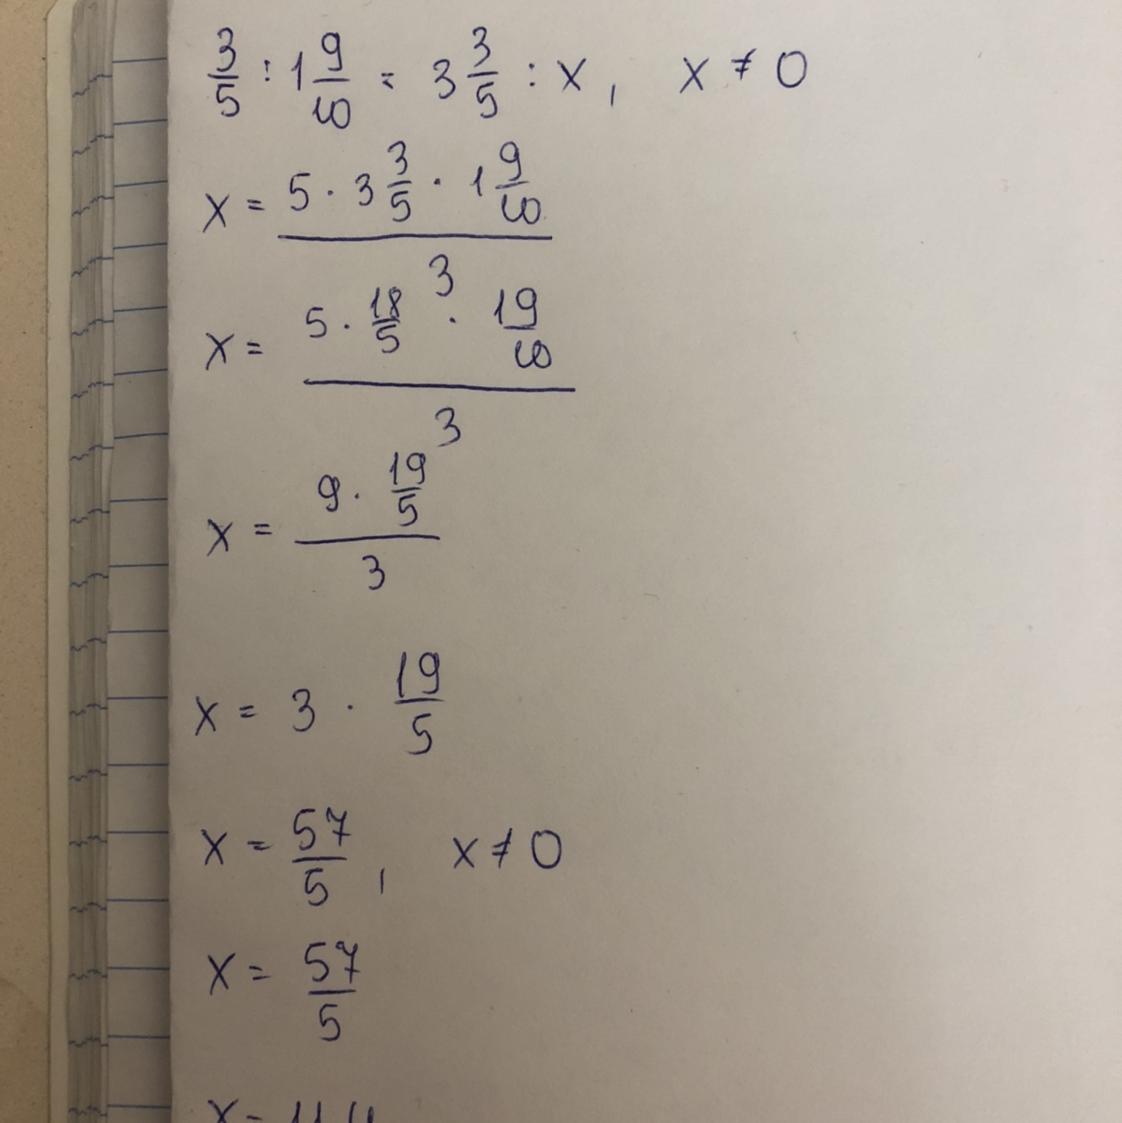 3/5 : 1 9/10 = 3 3/5 : x, x ≠ 0
x = (5 · 3 3/5 · 1 9/10) / 3
x = (5 · 18/5 · 19/10) / 3
x = (9 · 19/5) / 3
x = 3 · 19/5
x = 57/5, x ≠ 0
x = 57/5